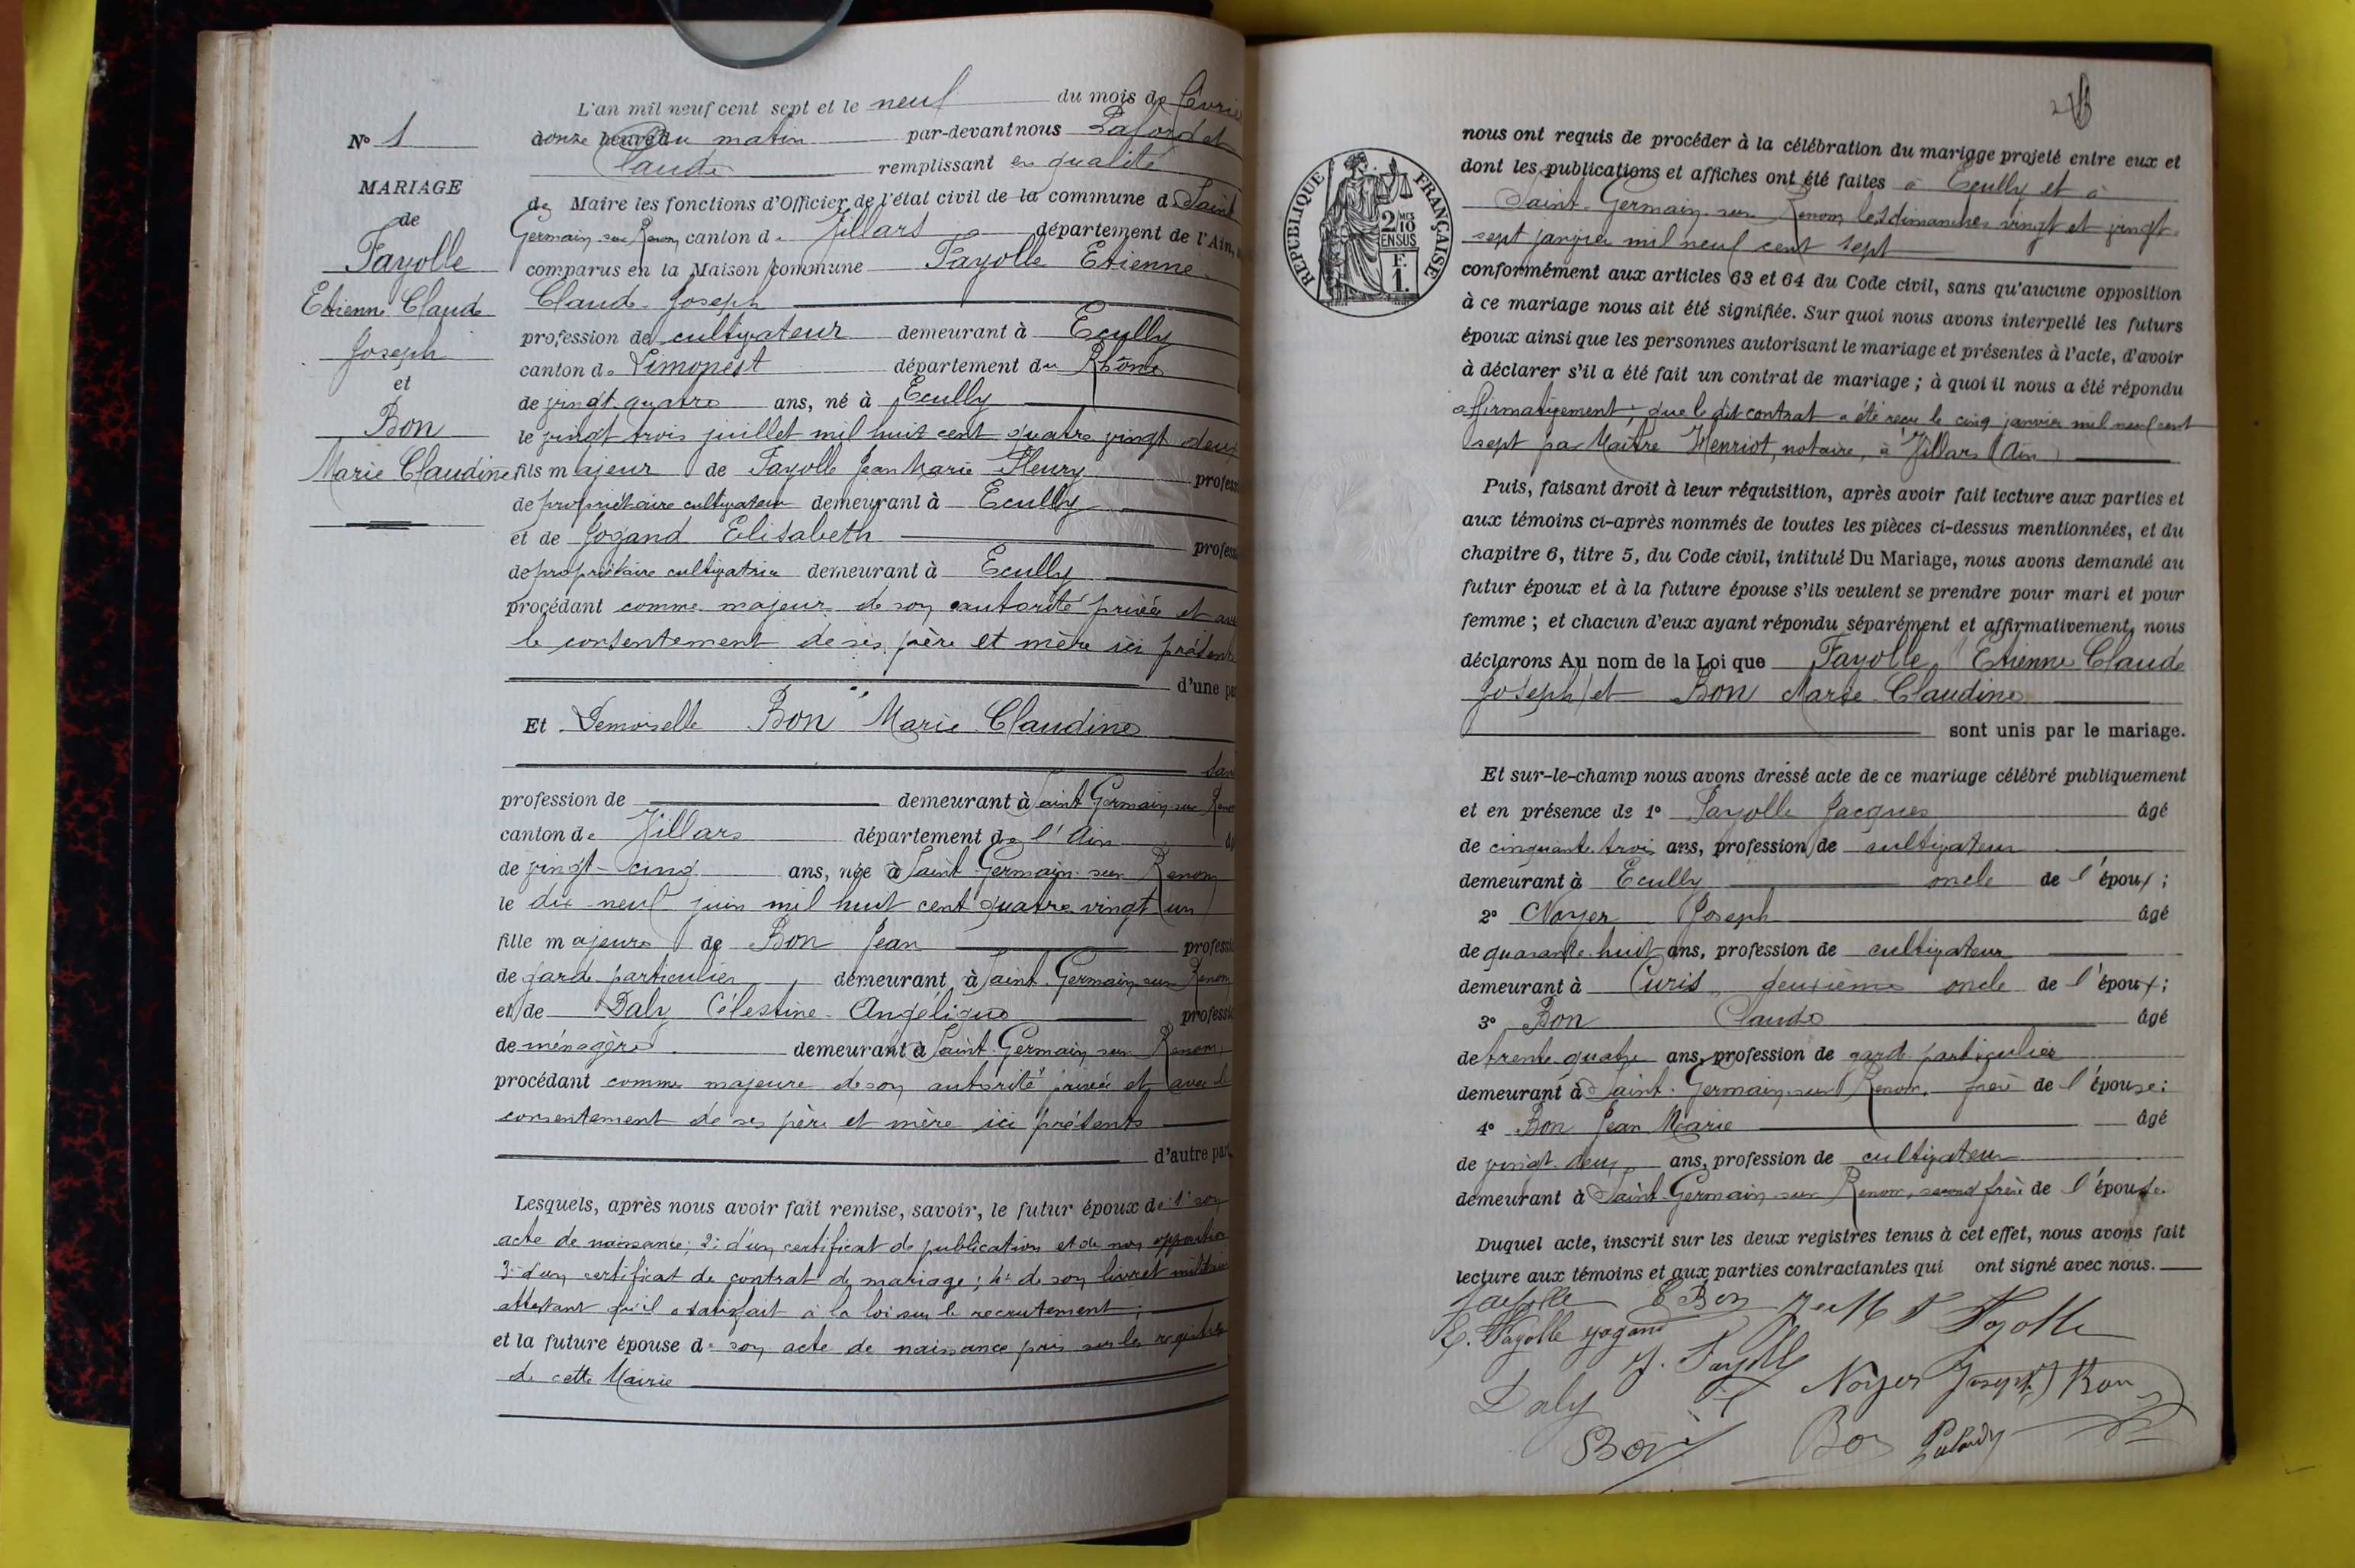 N° 1
MARIAGE
de
Fayolle
Etienne Claude
Joseph
et
Bon
Marie Claudine
L'an mil neuf cent sept et le neuf du mois de févri
du matin par-devant nous Lafond et
Claude remplissant en qualité
de Maire les fonctions d'Officier de l'état civil de la commune d Saint
Germain sur Renom canton de Villars département de l'Ain,
comparus en la Maison commune Fayolle Etienne
Claude Joseph
profession de cultivateur demeurant à Ecully
canton de Limonest département du Rhône
de vingt quatre ans, né à Ecully
le vingt trois juillet mil huit cent quatre vingt deux
fils majeur de Fayolle Jean Marie Fleury profess
de propriétaire cultivateur demeurant à Ecully
et de Jogand Elisabeth profess
de propriétaire cultivatrice demeurant à Ecully
procédant comme majeur de son autorité privée et av
le consentement de ses père et mère ici présents
d'une pa
Et Demoiselle Bon Marie Claudine
san
profession de demeurant à Saint Germain sur Renom
canton de Villars département de l'Ain
de vingt-cinq ans, née à Saint Germain sur Renom
le dix-neuf juin mil huit cent quatre vingt un
fille majeure de Bon Jean professi
de garde particulier demeurant à Saint Germain sur Renom
et de Daly Célestine Angélique professi
de ménagère demeurant à Saint Germain sur Renom,
procédant comme majeure de son autorité privée et avec le
consentement de ses père et mère ici présents
d'autre part
Lesquels, après nous avoir fait remise, savoir, le futur époux de 1° son
acte de naissance; 2° d'un certificat de publication et de non opposition
3° d'un certificat de contrat de mariage; 4° de son livret militaire
attestant qu'il a satisfait à la loi sur le recrutement;
et la future épouse de son acte de naissance pris sur les registres
de cette Mairie
RÉPUBLIQUE FRANÇAISE
2 MES
10
EN SUS
F.
1.
nous ont requis de procéder à la célébration du mariage projeté entre eux et
dont les publications et affiches ont été faites à Ecully et à
Saint-Germain sur Renom les dimanches vingt et vingt
sept janvier mil neuf cent sept
conformément aux articles 63 et 64 du Code civil, sans qu'aucune opposition
à ce mariage nous ait été signifiée. Sur quoi nous avons interpellé les futurs
époux ainsi que les personnes autorisant le mariage et présentes à l'acte, d'avoir
à déclarer s'il a été fait un contrat de mariage; à quoi il nous a été répondu
affirmativement; que le dit contrat a été reçu le cinq janvier mil neuf cent
sept par Maître Henriot, notaire, à Villars (Ain)
Puis, faisant droit à leur réquisition, après avoir fait lecture aux parties et
aux témoins ci-après nommés de toutes les pièces ci-dessus mentionnées, et du
chapitre 6, titre 5, du Code civil, intitulé Du Mariage, nous avons demandé au
futur époux et à la future épouse s'ils veulent se prendre pour mari et pour
femme; et chacun d'eux ayant répondu séparément et affirmativement, nous
déclarons Au nom de la Loi que Fayolle Etienne Claude
Joseph et Bon Marie Claudine
sont unis par le mariage.
Et sur-le-champ nous avons dressé acte de ce mariage célébré publiquement
et en présence de 1° Fayolle Jacques âgé
de cinquante trois ans, profession de cultivateur
demeurant à Ecully oncle de l'époux;
2° Noyer Joseph âgé
de quarante huit ans, profession de cultivateur
demeurant à Curis, deuxième oncle de l'époux;
3° Bon Claude âgé
de trente quatre ans, profession de garde particulier
demeurant à Saint-Germain sur Renom, frère de l'épouse;
4° Bon Jean Marie âgé
de vingt deux ans, profession de cultivateur
demeurant à Saint-Germain sur Renom, second frère de l'épouse.
Duquel acte, inscrit sur les deux registres tenus à cet effet, nous avons fait
lecture aux témoins et aux parties contractantes qui ont signé avec nous.
Fayolle C Bon Fayolle
E. Fayolle yogand
J. Fayolle Noyer Joseph J Bon
Daly
Bon Bon Lafond